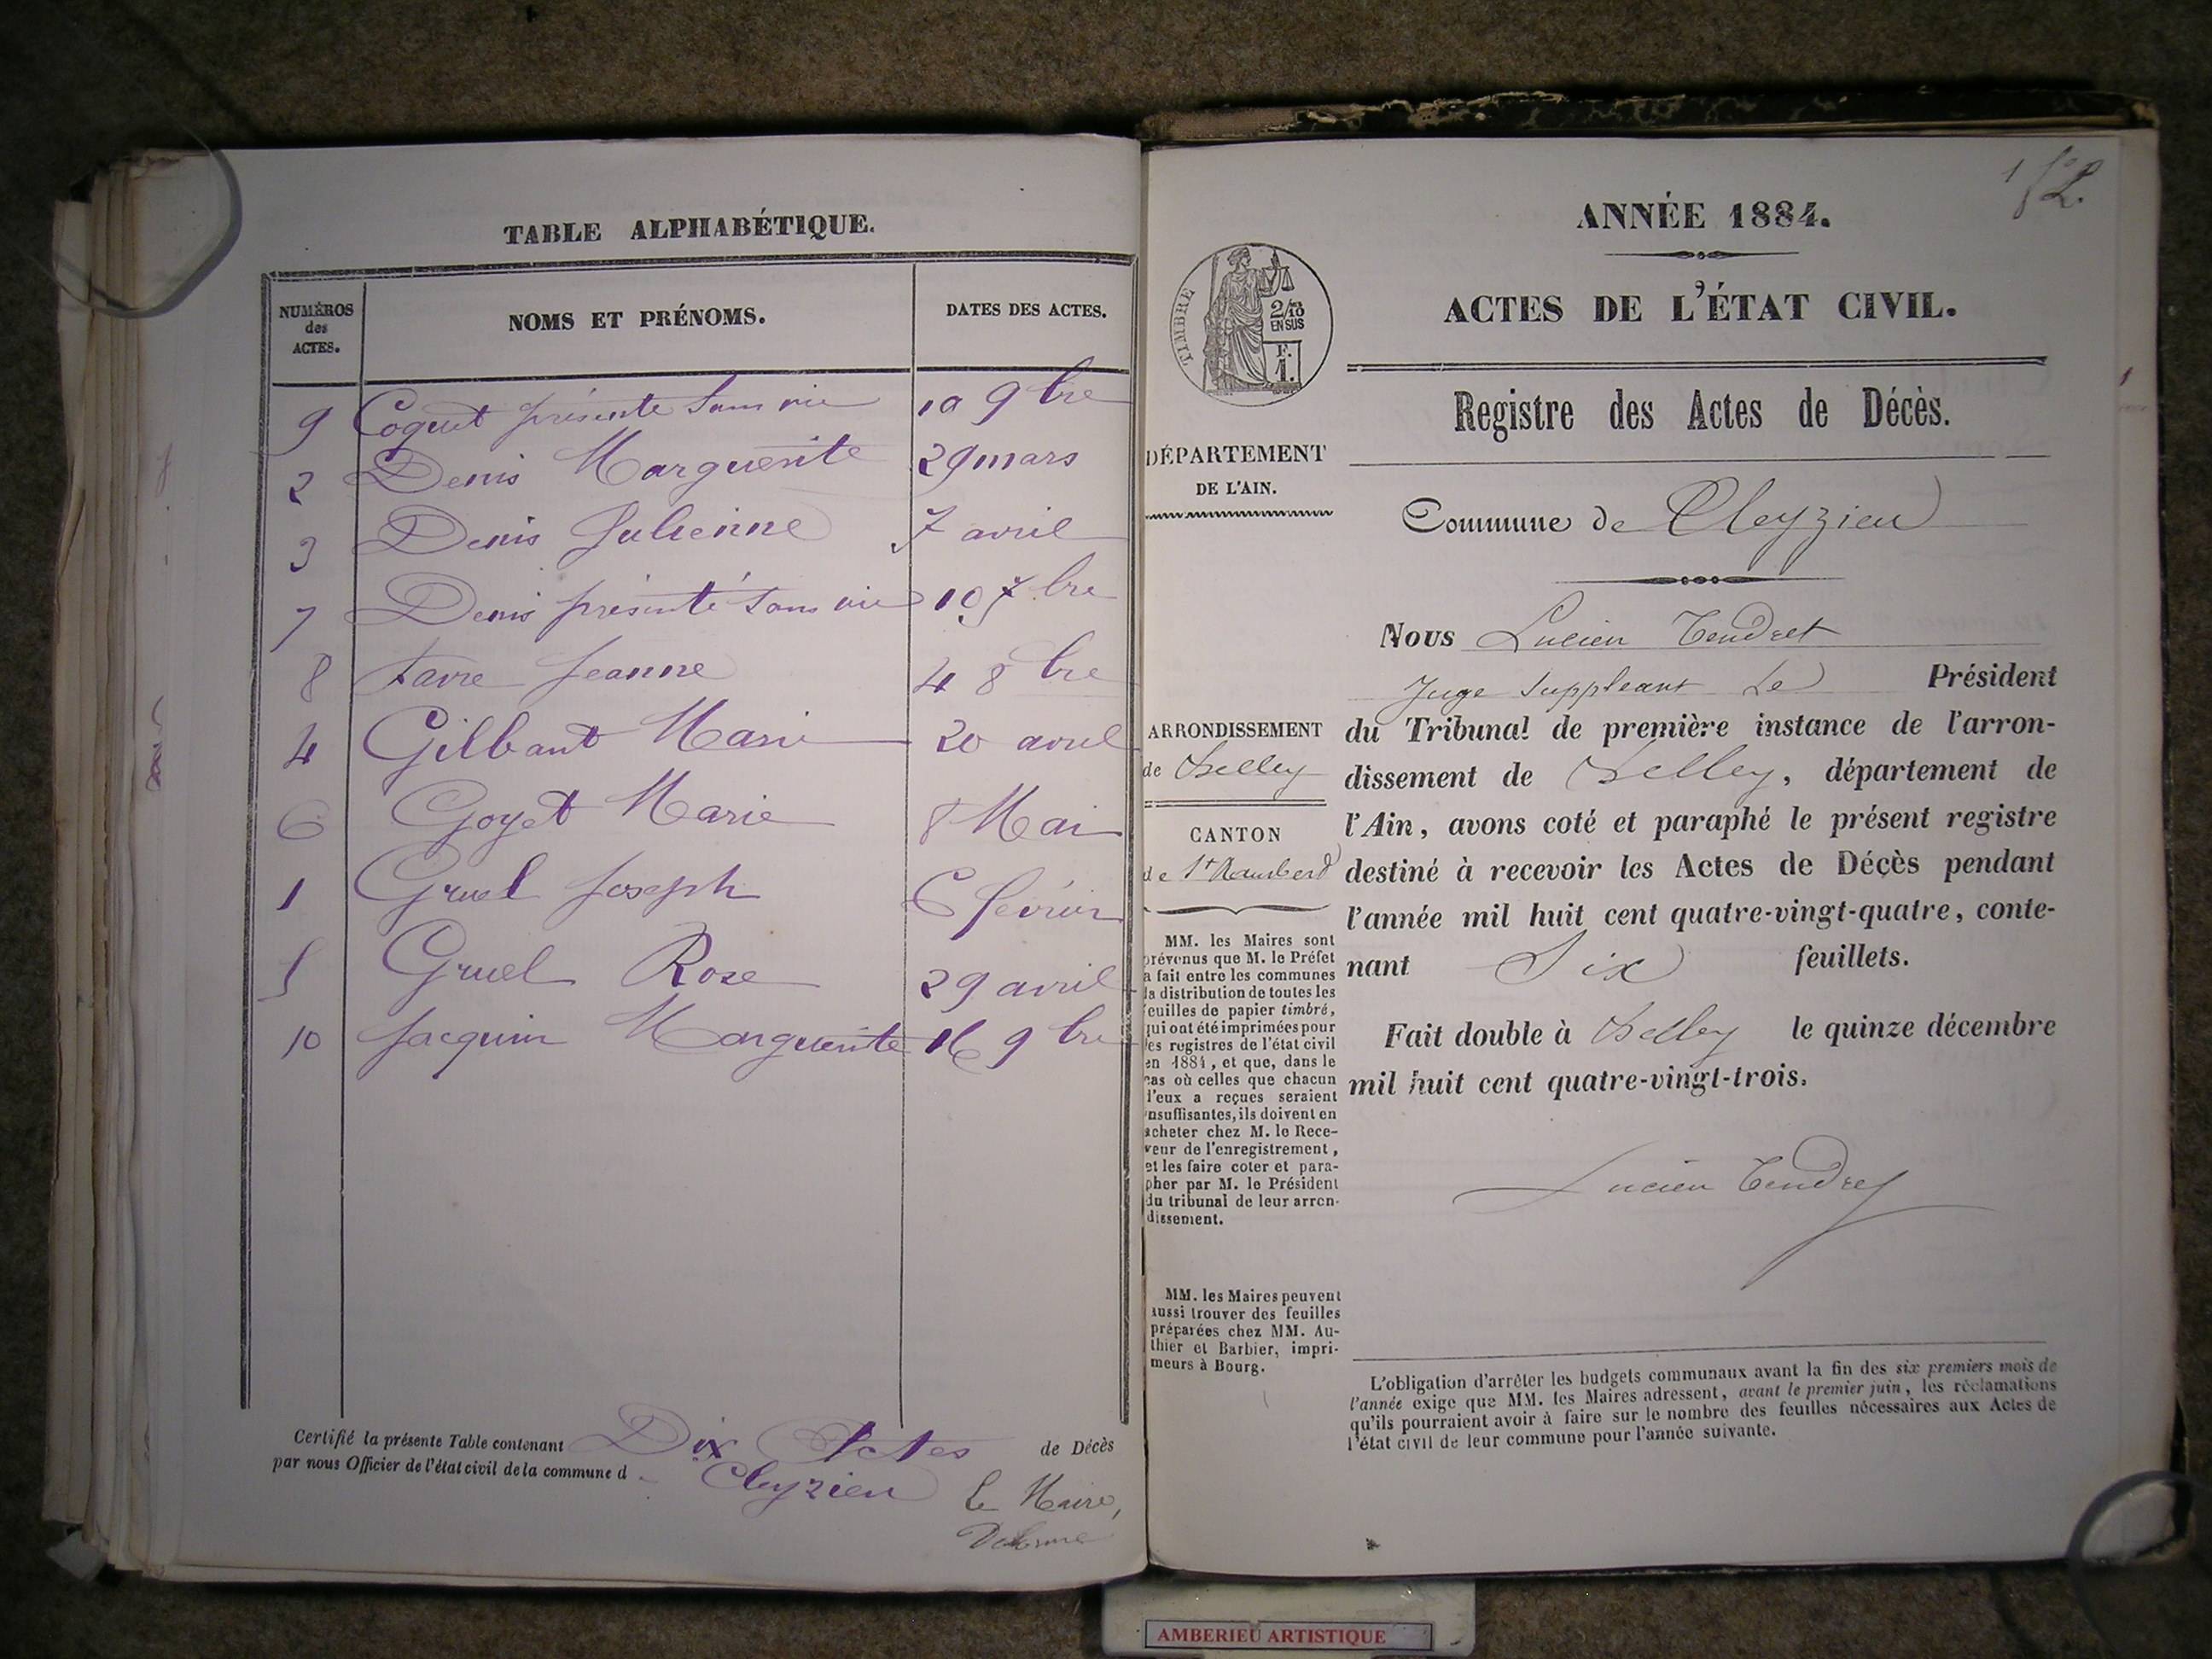 TABLE ALPHABÉTIQUE.
NUMÉROS des ACTES. NOMS ET PRÉNOMS. DATES DES ACTES.
9 Coquet présenté sans vie 10 9bre
2 Denis Marguerite 29 mars
3 Denis Julienne 7 avril
7 Denis présenté sans vie 10 7bre
8 favre Jeanne 4 8bre
4 Gilbaut Marie 20 avril
6 Goyet Marie 8 Mai
1 Gruel Joseph 6 février
5 Gruel Rose 29 avril
10 Jacquin Marguerite 16 9bre
Certifié la présente Table contenant Dix Actes de Décès
par nous Officier de l'état civil de la commune d Cleyzieu
Le Maire,
Delorme
1 f
ANNÉE 1884.
ACTES DE L'ÉTAT CIVIL.
TIMBRE
2/10
EN SUS
F.
1.
Registre des Actes de Décès.
DÉPARTEMENT
DE L'AIN.
Commune de Cleyzieu
Nous Lucien Tendret
Juge Suppléant Le Président
du Tribunal de première instance de l'arron-
dissement de Belley, département de
l'Ain, avons coté et paraphé le présent registre
destiné à recevoir les Actes de Décès pendant
l'année mil huit cent quatre-vingt-quatre, conte-
nant Six feuillets.
Fait double à Belley le quinze décembre
mil huit cent quatre-vingt-trois.
Lucien Tendret
ARRONDISSEMENT
de Belley
CANTON
de St Rambert
MM. les Maires sont
prévenus que M. le Préfet
a fait entre les communes
la distribution de toutes les
feuilles de papier timbré,
qui ont été imprimées pour
les registres de l'état civil
en 1884, et que, dans le
cas où celles que chacun
d'eux a reçues seraient
insuffisantes, ils doivent en
acheter chez M. le Rece-
veur de l'enregistrement,
et les faire coter et para-
pher par M. le Président
du tribunal de leur arron-
dissement.
MM. les Maires peuvent
aussi trouver des feuilles
préparées chez MM. Au-
thier et Barbier, impri-
meurs à Bourg.
L'obligation d'arrêter les budgets communaux avant la fin des six premiers mois de
l'année exige que MM. les Maires adressent, avant le premier juin, les réclamations
qu'ils pourraient avoir à faire sur le nombre des feuilles nécessaires aux Actes de
l'état civil de leur commune pour l'année suivante.
AMBERIEU ARTISTIQUE